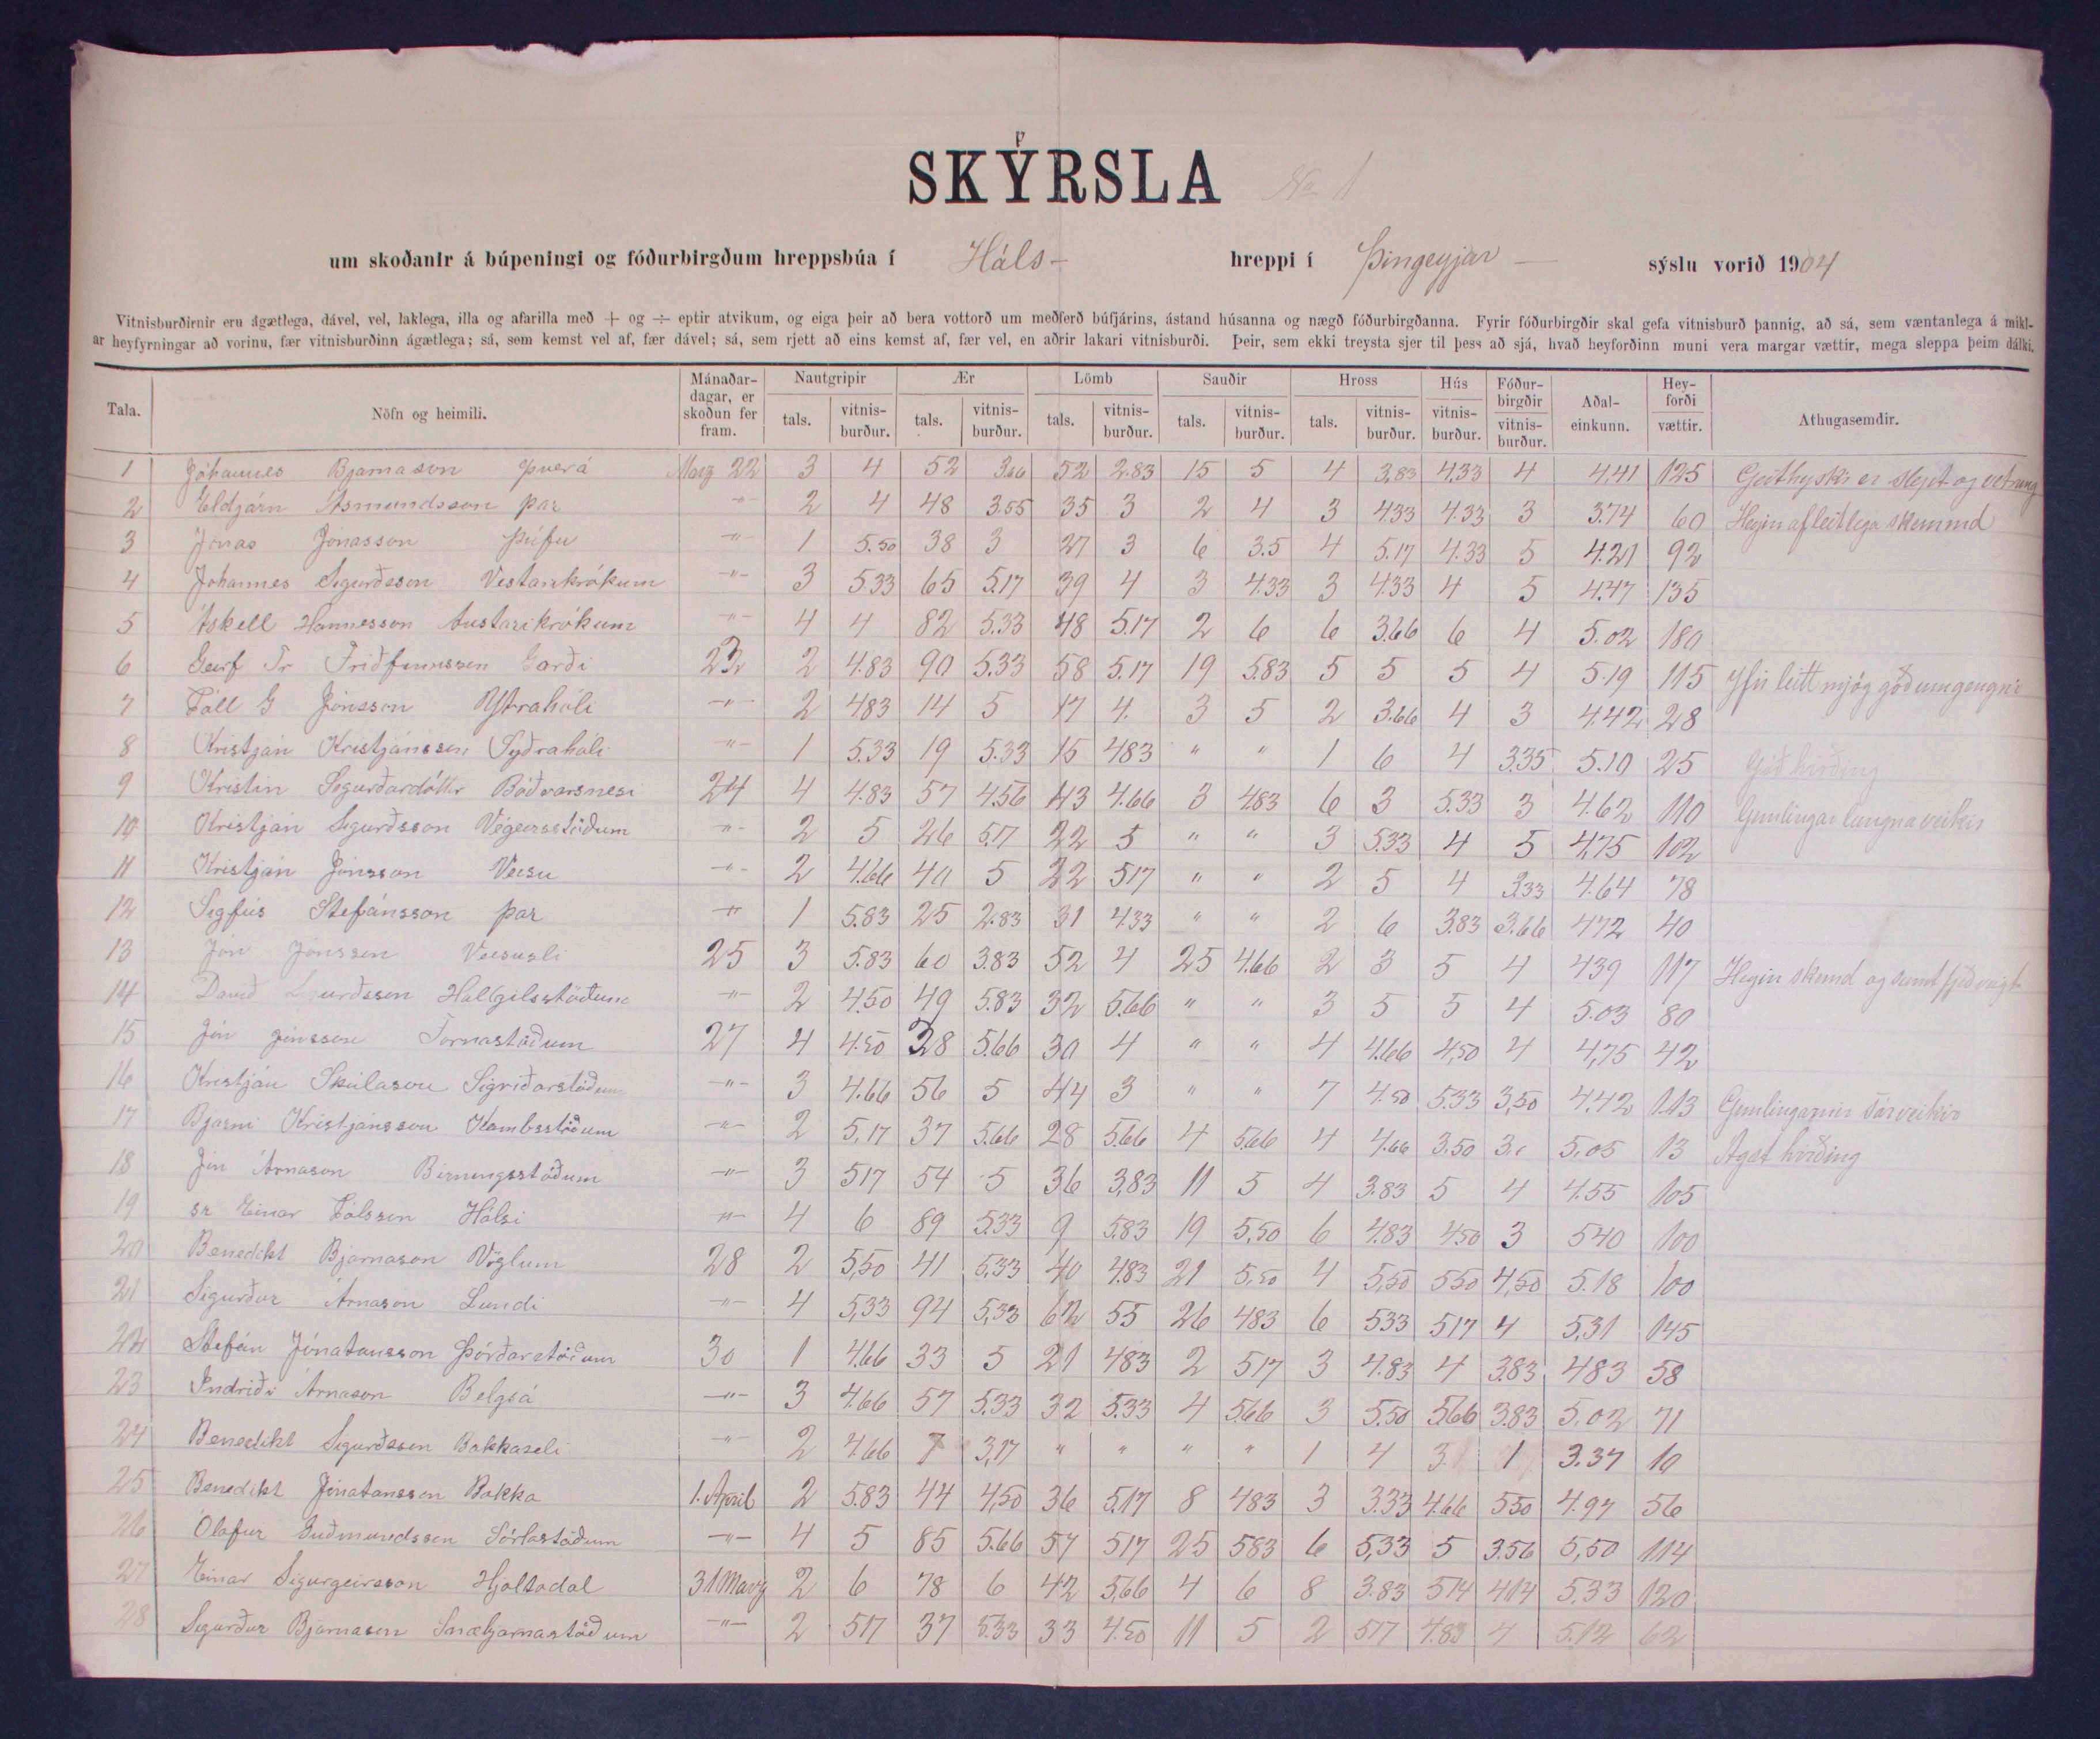 SKÝRSLA No 1
um skoðanir á búpeningi og fóðurbirgðum hreppsbúa í Háls- hreppi í Þingeyjar — sýslu vorið 1904
Vitnisburðirnir eru ágætlega, dável, vel, laklega, illa og afarilla með + og ÷ eptir atvikum, og eiga þeir að bera vottorð um meðferð búfjárins, ástand húsanna og nægð fóðurbirgðanna. Fyrir fóðurbirgðir skal gefa vitnisburð þannig, að sá, sem væntanlega á mikl-
ar heyfyrningar að vorinu, fær vitnisburðinn ágætlega; sá, sem kemst vel af, fær dável; sá, sem rjett að eins kemst af, fær vel, en aðrir lakari vitnisburði. Þeir, sem ekki treysta sjer til þess að sjá, hvað heyforðinn muni vera margar vættir, mega sleppa þeim dálki.
Tala. Nöfn og heimili. Mánaðar-dagar, er skoðun fer fram. Nautgripir tals. vitnis-burður. Ær tals. vitnis-burður. Lömb tals. vitnis-burður. Sauðir tals. vitnis-burður. Hross tals. vitnis-burður. Hús vitnis-burður. Fóður-birgðir vitnis-burður. Aðal-einkunn. Hey-forði vættir. Athugasemdir.
1 Jóhannes Bjarnason Þverá Marz 22 3 4 52 3.66 52 2.83 15 5 4 3,83 4,33 4 4,41 125 er slept og
2 Eldjárn Ásmundsson þar -"- 2 4 48 3.55 35 3 2 4 3 4.33 4.33 3 3.74 60 Heyin afleitlega skemmd
3 Jónas Jónasson Þúfu -"- 1 5.50 38 3 27 3 6 3.5 4 5.17 4.33 5 4.21 92
4 Jóhannes Sigurðsson Vestarikrókum -"- 3 533 65 5.17 39 4 3 4.33 3 4.33 4 5 4.47 135
5 Áskell Hannesson Austarikrókum -"- 4 4 82 5.33 48 5.17 2 6 6 3.66 6 4 5.02 180
6 Fr Friðfinnsson Garði 23 2 4.83 90 5.33 58 5.17 19 5.83 5 5 5 4 5.19 115 Yfir leitt mjög góð umgengni
7 Páll G Jónsson Ytrahóli -"- 2 483 14 5 17 4. 3 5 2 3.66 4 3 4.42 28
8 Kristján Kristjánsson Syðrahóli -"- 1 5.33 19 5.33 15 483 " " 1 6 4 3.35 5.10 25 Góð hirðing
9 Kristín Sigurðardóttir Böðvarsnesi 24 4 4.83 57 4.56 43 4.66 3 4.83 6 3 5.33 3 4.62 110 Gemlingar lungnaveikir
10 Kristján Sigurðsson Végeirsstöðum -"- 2 5 26 5.17 22 5 " " 3 5.33 4 5 4,75 102
11 Kristján Jónsson Veisu -"- 2 4.66 40 5 22 517 " " 2 5 4 3.33 4.64 78
12 Sigfús Stefánsson þar -"- 1 5.83 25 2.83 31 4.33 " " 2 6 3.83 3.66 472 40
13 Jón Jónsson Veisuseli 25 3 5.83 60 3.83 52 4 25 4.66 2 3 5 4 439 117 Heyin skemd og
14 Davíð Sigurðsson Hallgilsstöðum -"- 2 4.50 49 5.83 32 5.66 " " 3 5 5 4 5.03 80
15 Jón Jónsson Fornastöðum 27 4 4.50 28 5.66 30 4 " " 4 4.66 4,50 4 4,75 42
16 Kristján Skúlason Sigríðarstöðum -"- 3 4.66 56 5 44 3 " " 7 4.50 5.33 3,50 4,42 113 Gemlingarnir
17 Bjarni Kristjánsson Kambsstöðum -"- 2 5,17 37 5.66 28 5.66 4 5.66 4 4.66 3.50 5,05 13 Ágæt hirðing
18 Jón Árnason Birningsstöðum -"- 3 517 54 5 36 3,83 11 5 4 3.83 5 4 4.55 105
19 sr Einar Pálsson Hálsi -"- 4 6 89 5.33 9 5.83 19 5,50 6 4.83 450 3 540 100
20 Benedikt Bjarnason Vöglum 28 2 5,50 41 5,33 40 4.83 21 5.50 4 5,50 550 4,50 5.18 100
21 Sigurður Árnason Lundi -"- 4 5,33 94 5,33 62 55 26 483 6 533 517 4 5,31 145
22 Stefán Jónatansson Þórðarstöðum 30 1 4.66 33 5 21 483 2 517 3 4.83 4 3.83 483 58
23 Indriði Árnason Belgsá -"- 3 4.66 57 5.33 32 5.33 4 5.66 3 5.50 566 3.83 5.02 71
24 Benedikt Sigurðsson Bakkaseli -"- 2 4.66 7 3,17 " " " " 1 4 3 1 3.37 10
25 Benedikt Jónatansson Bakka 1. Apríl 2 5.83 44 4,50 36 5.17 8 483 3 3.33 4.66 550 4.97 56
26 Ólafur Guðmundsson Sörlastöðum -"- 4 5 85 5.66 57 517 25 583 6 5,33 5 3.56 5,50 114
27 Einar Sigurgeirsson Hjaltadal 31 Marz 2 6 78 6 42 5,66 4 6 8 3.83 514 414 5,33 120
28 Sigurður Bjarnason Snæbjarnastöðum -"- 2 517 37 5.33 33 4.50 11 5 2 517 4.83 4 5.12 62